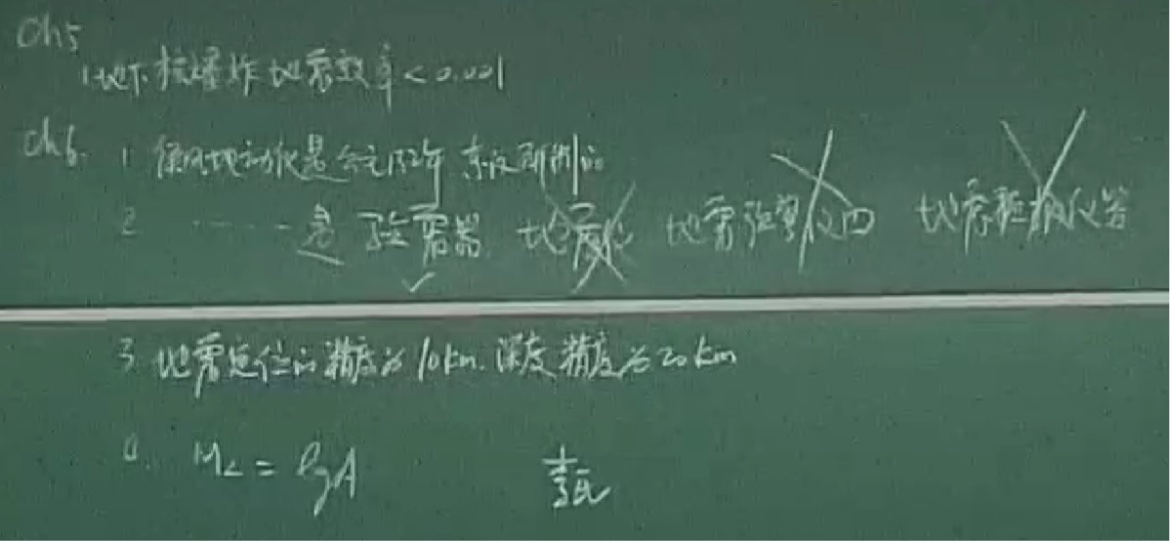 Ch5
1 地下核爆炸地震效率<0.001
Ch6. 1 候风地动仪是公元132年 东汉 研制的
2 ------是 验震器 地震仪 地震预警仪 地震验报仪器
3 地震定位的精度为10km.深度精度为20km
4. ML = lgA 李氏